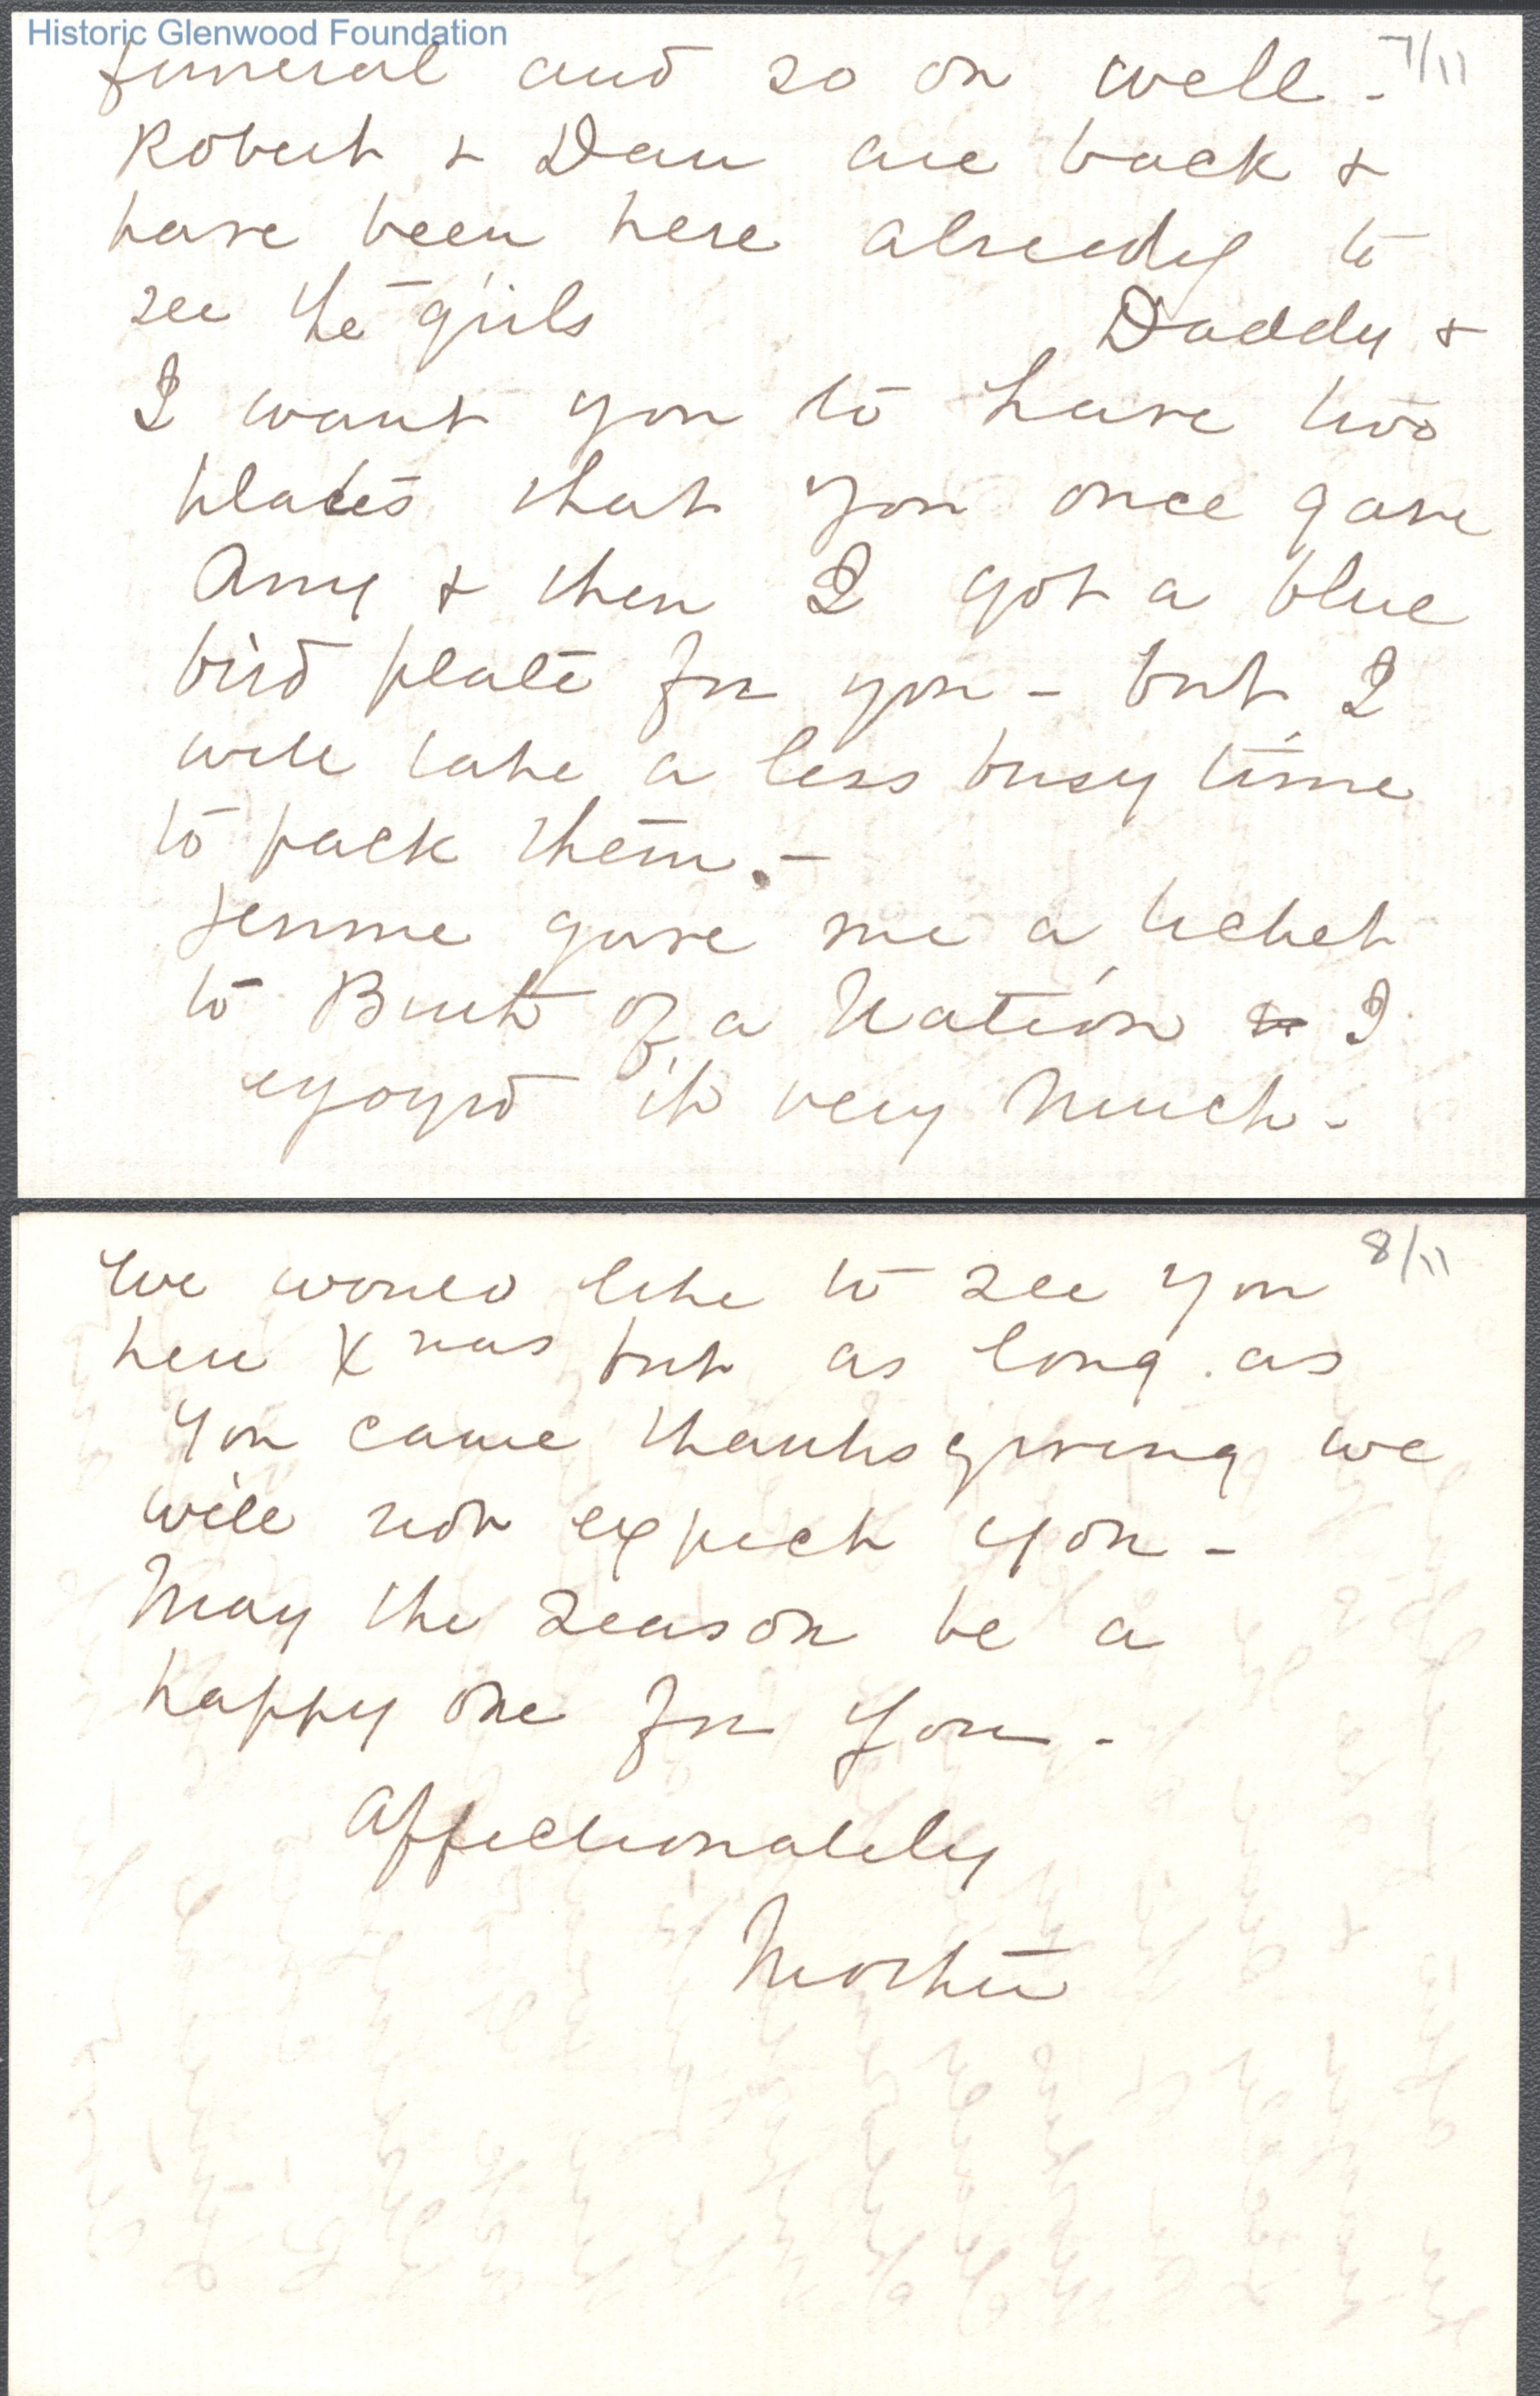 Historic Glenwood Foundation
7/11
funeral and so on well -
Robert & Dan are back &
have been here already to
see the girls Daddy &
I want you to have two
plates that you once gave
Amy & then I got a blue
bird plate for you - but I
will take a less busy time
to pack them. -
Jennie gave me a ticket
to Birth of a Nation I
enjoyed it very much -
8/11
We would like to see you
here Xmas but as long as
you came thanksgiving we
will not expect you -
May the season be a
happy one for you -
Affectionately
Mother